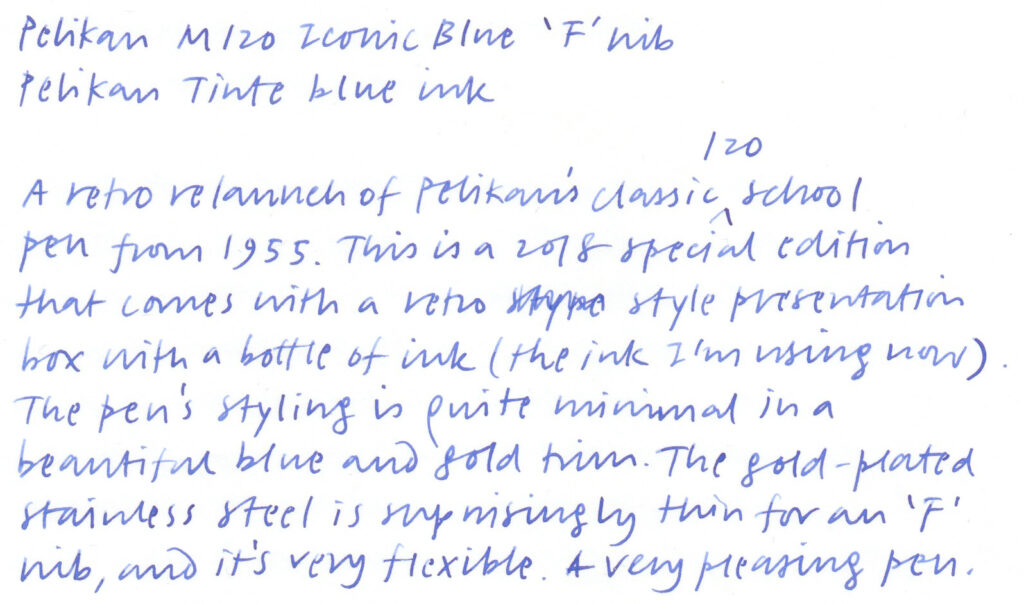 Pelikan M120 Iconic Blue 'F' nib
Pelikan Tinte blue ink
120
A retro relaunch of Pelikan's classic ^ school
pen from 1955. This is a 2018 special edition
that comes with a retro style presentation
box with a bottle of ink (the ink I'm using now).
The pen's styling is quite minimal in a
beautiful blue and gold trim. The gold-plated
stainless steel is suprisingly thin for an 'F'
nib, and it's very flexible. A very pleasing pen.